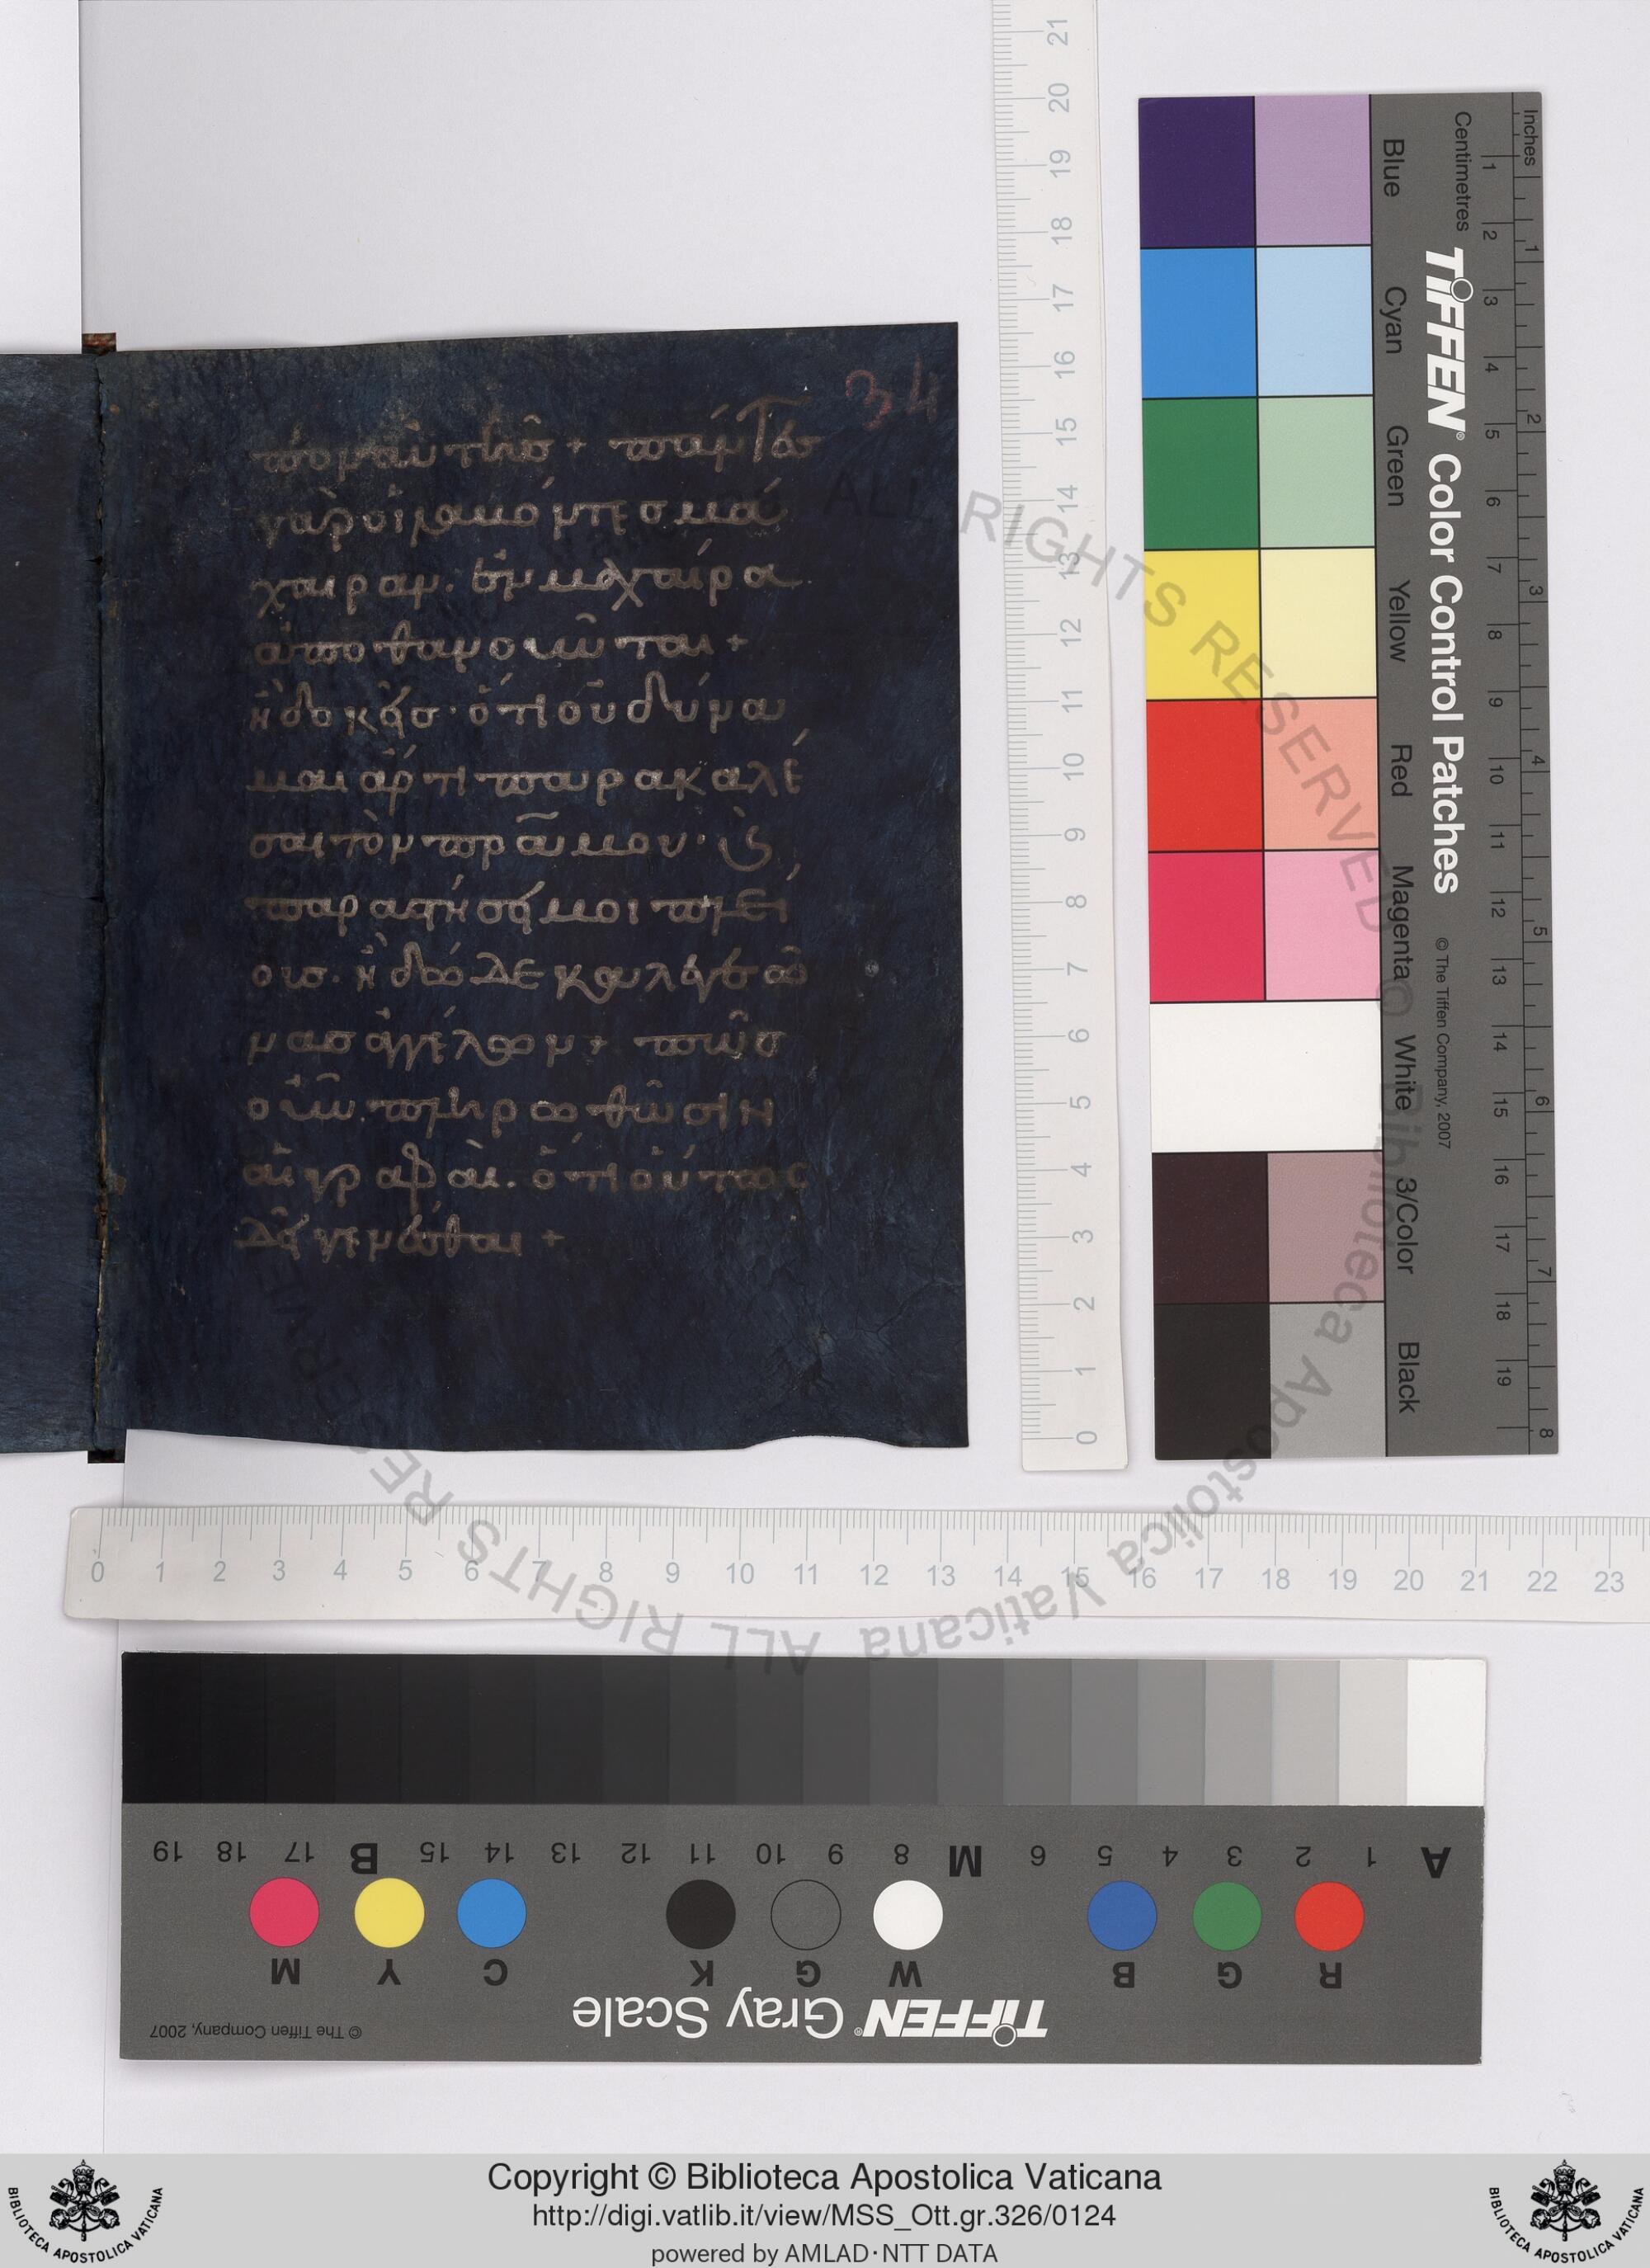 34
πον αὐτῆς + πάντες
γὰρ οἱ λαβόντες μά
χαιραν. ἐν μαχαίρα
ἀποθανοῦνται +
ἢ δοκεῖς· ὅτι οὐ δύνα
μαι ἄρτι παρακαλέ
σαι τὸν πρα μου· ϗ
παραστήσῃ μοι πλεί
ουσ. ἢ δώδεκα λεγεῶ
νασ ἀγγέλων + πῶσ
οὖν πληρωθῶσιν
αἱ γραφαὶ. ὅτι οὕτως
δεῖ γενέσθαι +
21 20 19 18 17 16 15 14 13 12 11 10 9 8 7 6 5 4 3 2 1 0
Inches 1 2 3 4 5 6 7 8
Centimetres 1 2 3 4 5 6 7 8 9 10 11 12 13 14 15 16 17 18 19
TIFFEN® Color Control Patches © The Tiffen Company, 2007
Blue Cyan Green Yellow Red Magenta White 3/Color Black
0 1 2 3 4 5 6 7 8 9 10 11 12 13 14 15 16 17 18 19 20 21 22 23
A 1 2 3 4 5 6 M 8 9 10 11 12 13 14 15 B 17 18 19
R G B W G K C Y M
TIFFEN® Gray Scale
© The Tiffen Company, 2007
Biblioteca Apostolica Vaticana ALL RIGHTS RESERVED
Copyright © Biblioteca Apostolica Vaticana
http://digi.vatlib.it/view/MSS_Ott.gr.326/0124
powered by AMLAD·NTT DATA
BIBLIOTECA APOSTOLICA VATICANA
BIBLIOTECA APOSTOLICA VATICANA